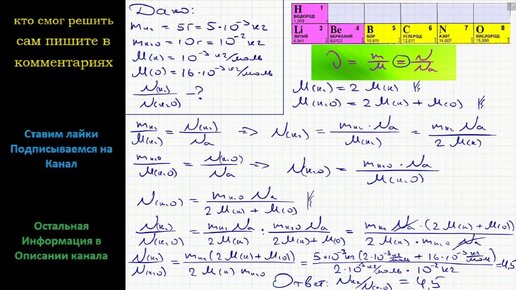 кто смог решить
сам пишите в
комментариях
Ставим лайки
Подписываемся на
Канал
Остальная
Информация в
Описании канала
Дано:
m_H₂ = 5г = 5·10⁻³ кг
m_H₂O = 10г = 10⁻² кг
M(H) = 10⁻³ кг/моль
M(O) = 16·10⁻³ кг/моль
N(H₂)/N(H₂O) - ?
H 1
ВОДОРОД
1,008
Li 3 Be 4 B 5 C 6 N 7 O 8
ЛИТИЙ БЕРИЛЛИЙ БОР УГЛЕРОД АЗОТ КИСЛОРОД
ν = m/M = N/Nа
M(H₂) = 2 M(H)
M(H₂O) = 2 M(H) + M(O)
m_H₂/M(H₂) = N(H₂)/Nа => N(H₂) = m_H₂ · Nа/M(H₂) = m_H₂ Nа/2 M(H)
m_H₂O/M(H₂O) = N(H₂O)/Nа => N(H₂O) = m_H₂O · Nа/M(H₂O)
N(H₂O) = m_H₂O Nа/2 M(H) + M(O)
N(H₂)/N(H₂O) = m_H₂ Nа/2 M(H) : m_H₂O Nа/2 M(H) + M(O) = m_H₂ Nа · (2 M(H) + M(O))/2 M(H) · m_H₂O Nа
N(H₂)/N(H₂O) = m_H₂ (2 M(H) + M(O))/2 M(H) m_H₂O = 5·10⁻³ кг (2·10⁻³ кг/моль + 16·10⁻³ кг/моль)/2·10⁻³ кг/моль · 10⁻² кг = 4,5
Ответ: N_H₂/N(H₂O) = 4,5